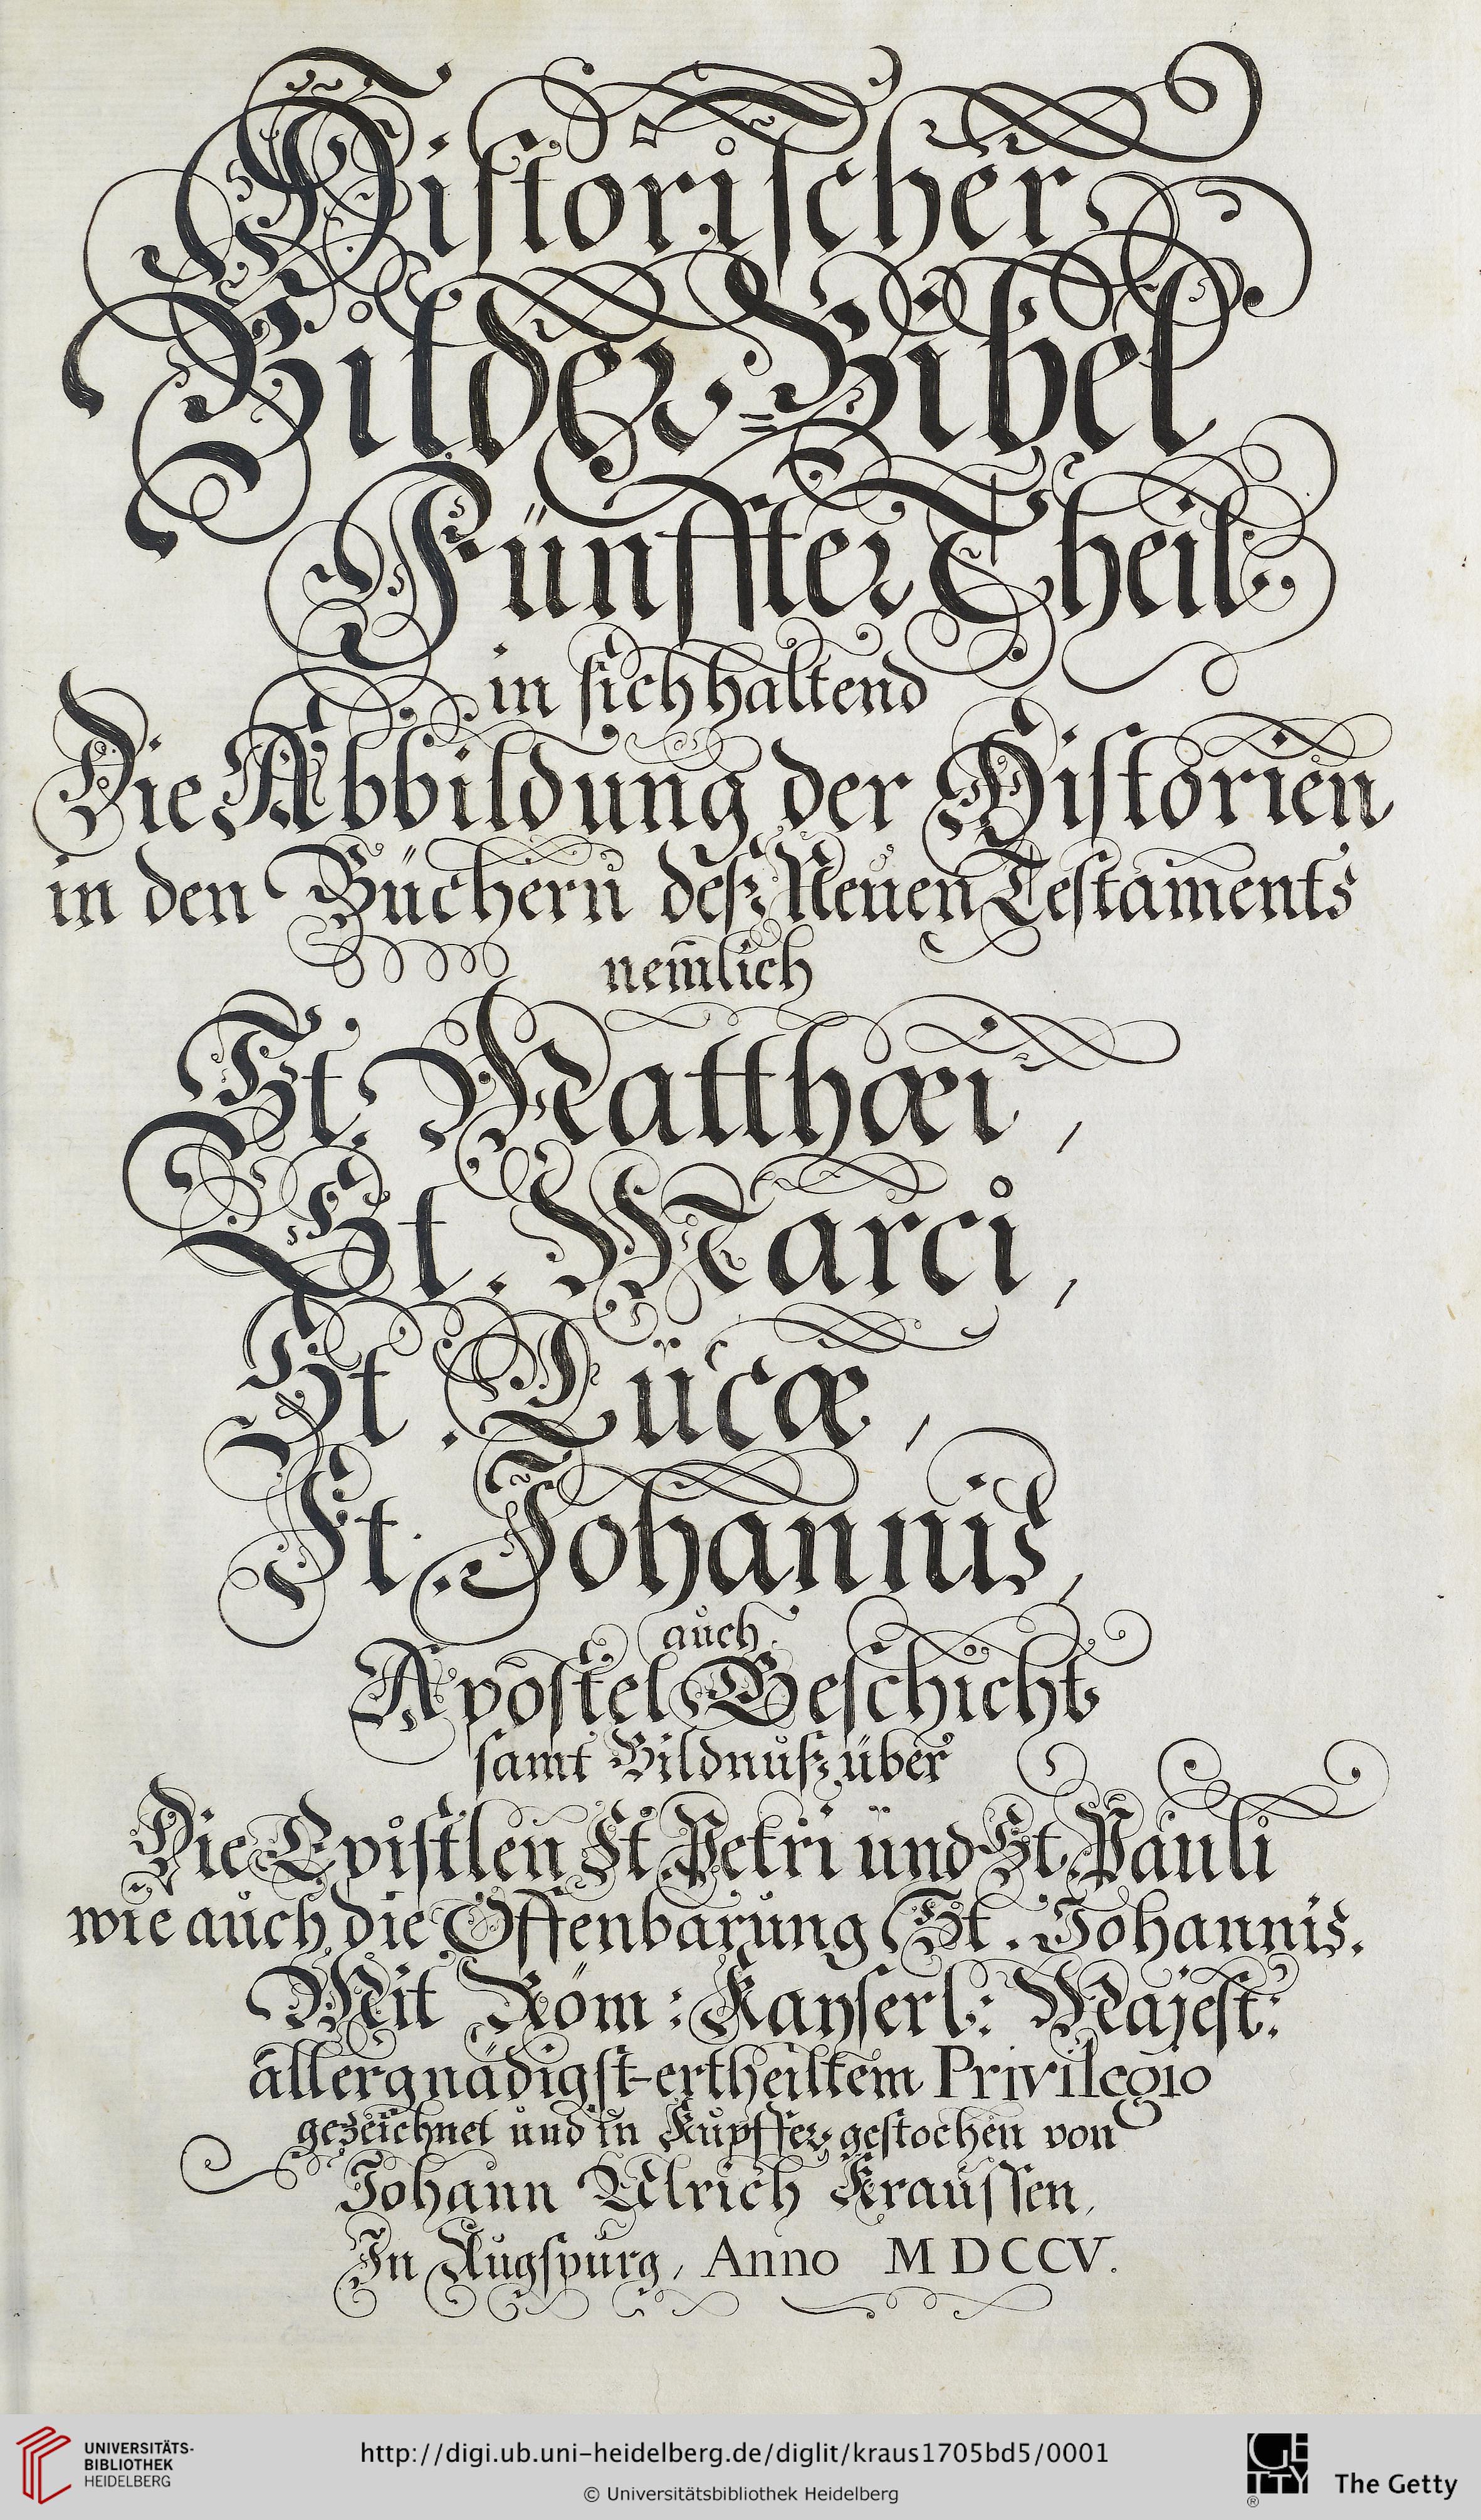 Historischer
Bilder-Bibel
Fünffter Theil
in sich haltend
Die Abbildung der Historien
in den Büchern deß Neuen Testaments
nemlich
St. Matthæi,
St. Marci,
St. Lucæ,
St. Johannis,
auch
Apostel Geschicht
samt Bildnuß über
Die Epistlen St. Petri und St. Pauli
wie auch die Offenbarung St. Johannis.
Mit Röm: Kayserl: Majest:
allergnädigst-ertheiltem Privilegio
gezeichnet und in Kupffer gestochen von
Johann Ulrich Kraussen,
In Augspurg, Anno MDCCV.
UNIVERSITÄTS-
BIBLIOTHEK
HEIDELBERG
http://digi.ub.uni-heidelberg.de/diglit/kraus1705bd5/0001
© Universitätsbibliothek Heidelberg
GETTY
®
The Getty